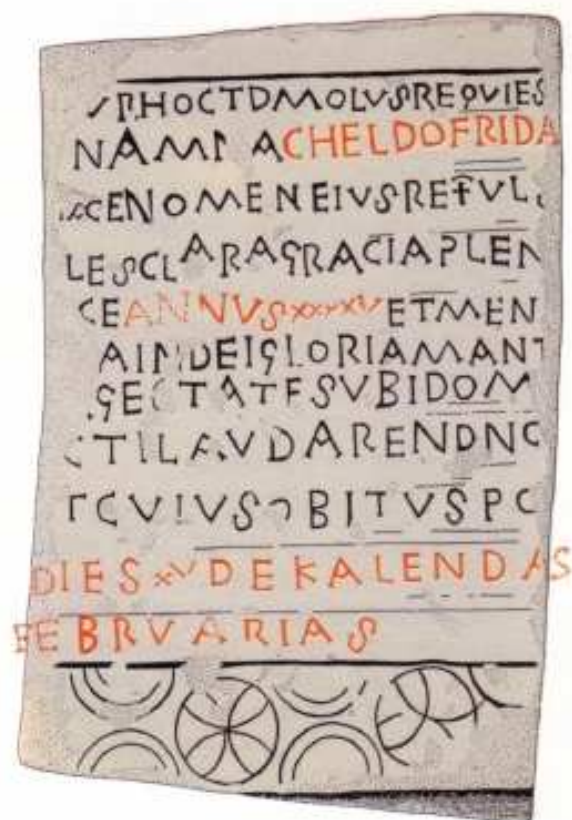 SPHOCTDMOLVSREQVIES
NAMP ACHELDOFRIDA
CENOMENEIVSREFVL
LESCLARAGRACIAPLEN
CEANNVSXXXXVETMEN
AINDEIGLORIAMANT
GECTATESVBIDOM
TILAVDARENDNC
TCVIVSOBITVSPC
DIESXVDEKALENDAS
FEBRVARIAS